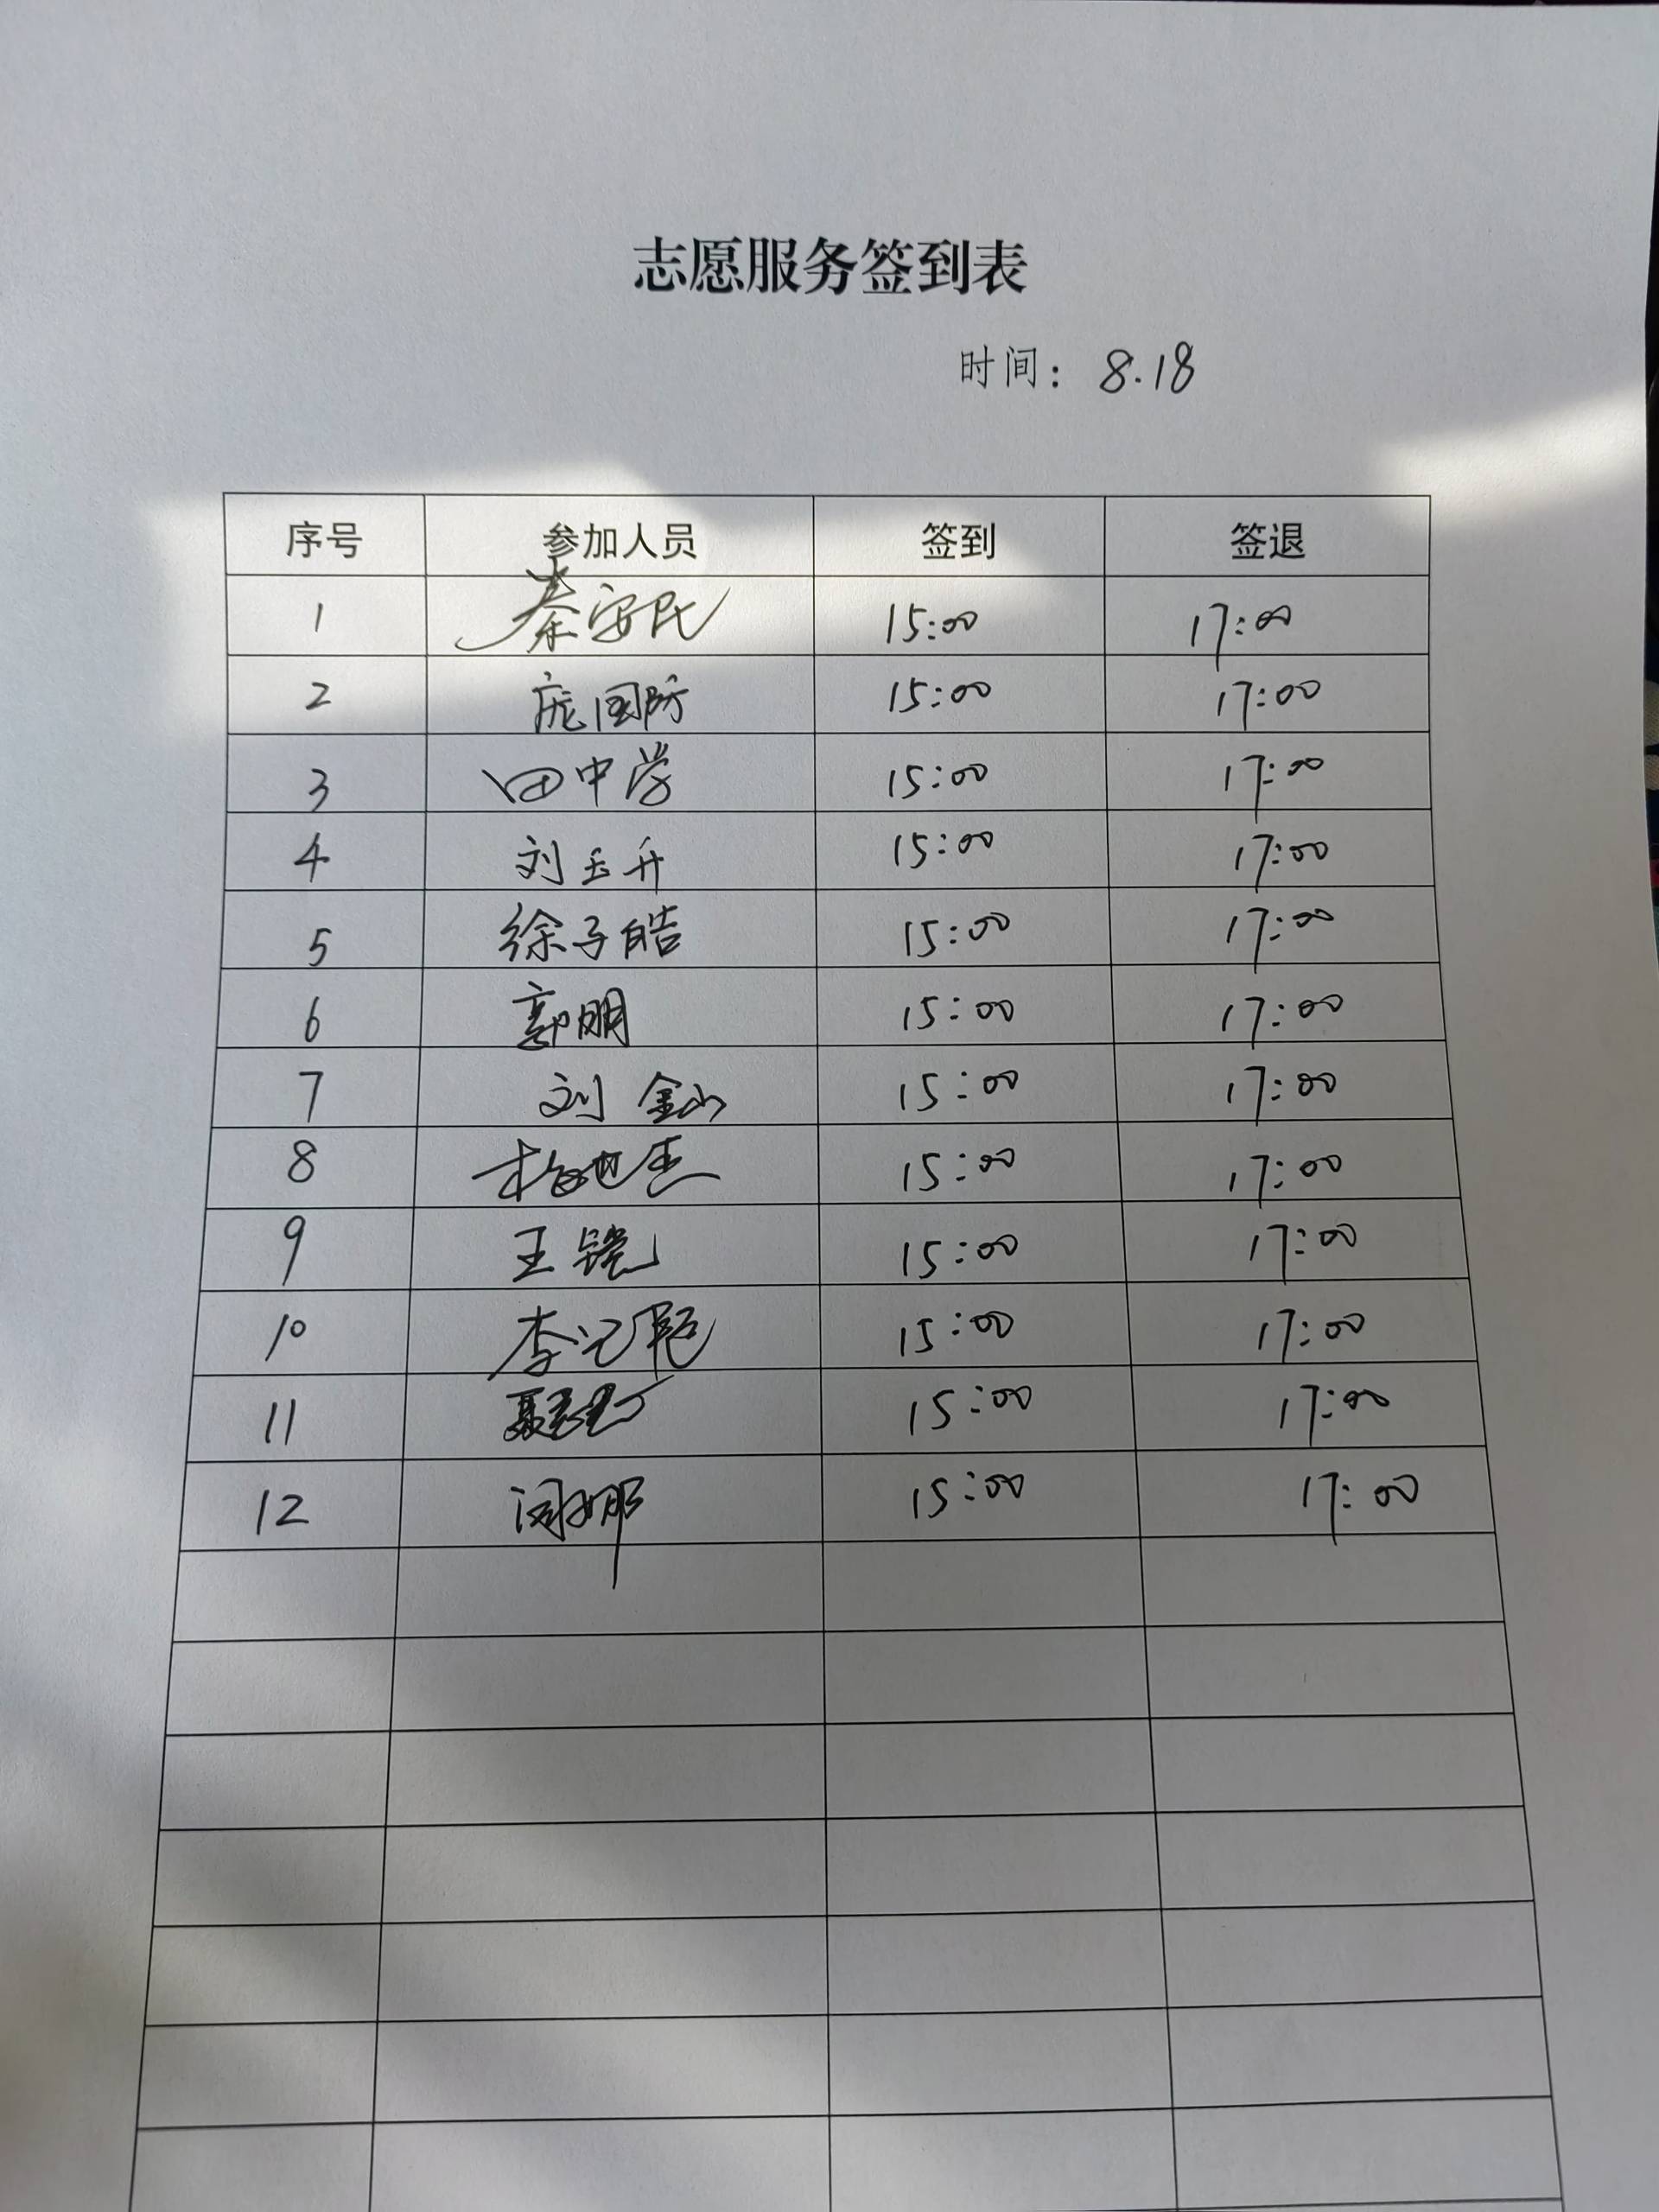 志愿服务签到表
时间：8.18
序号 参加人员 签到 签退
1 秦安民 15:00 17:00
2 庞国防 15:00 17:00
3 田中学 15:00 17:00
4 刘玉升 15:00 17:00
5 徐子皓 15:00 17:00
6 郭明 15:00 17:00
7 刘金山 15:00 17:00
8 15:00 17:00
9 王锐 15:00 17:00
10 李记 15:00 17:00
11 聂 15:00 17:00
12 娜 15:00 17:00